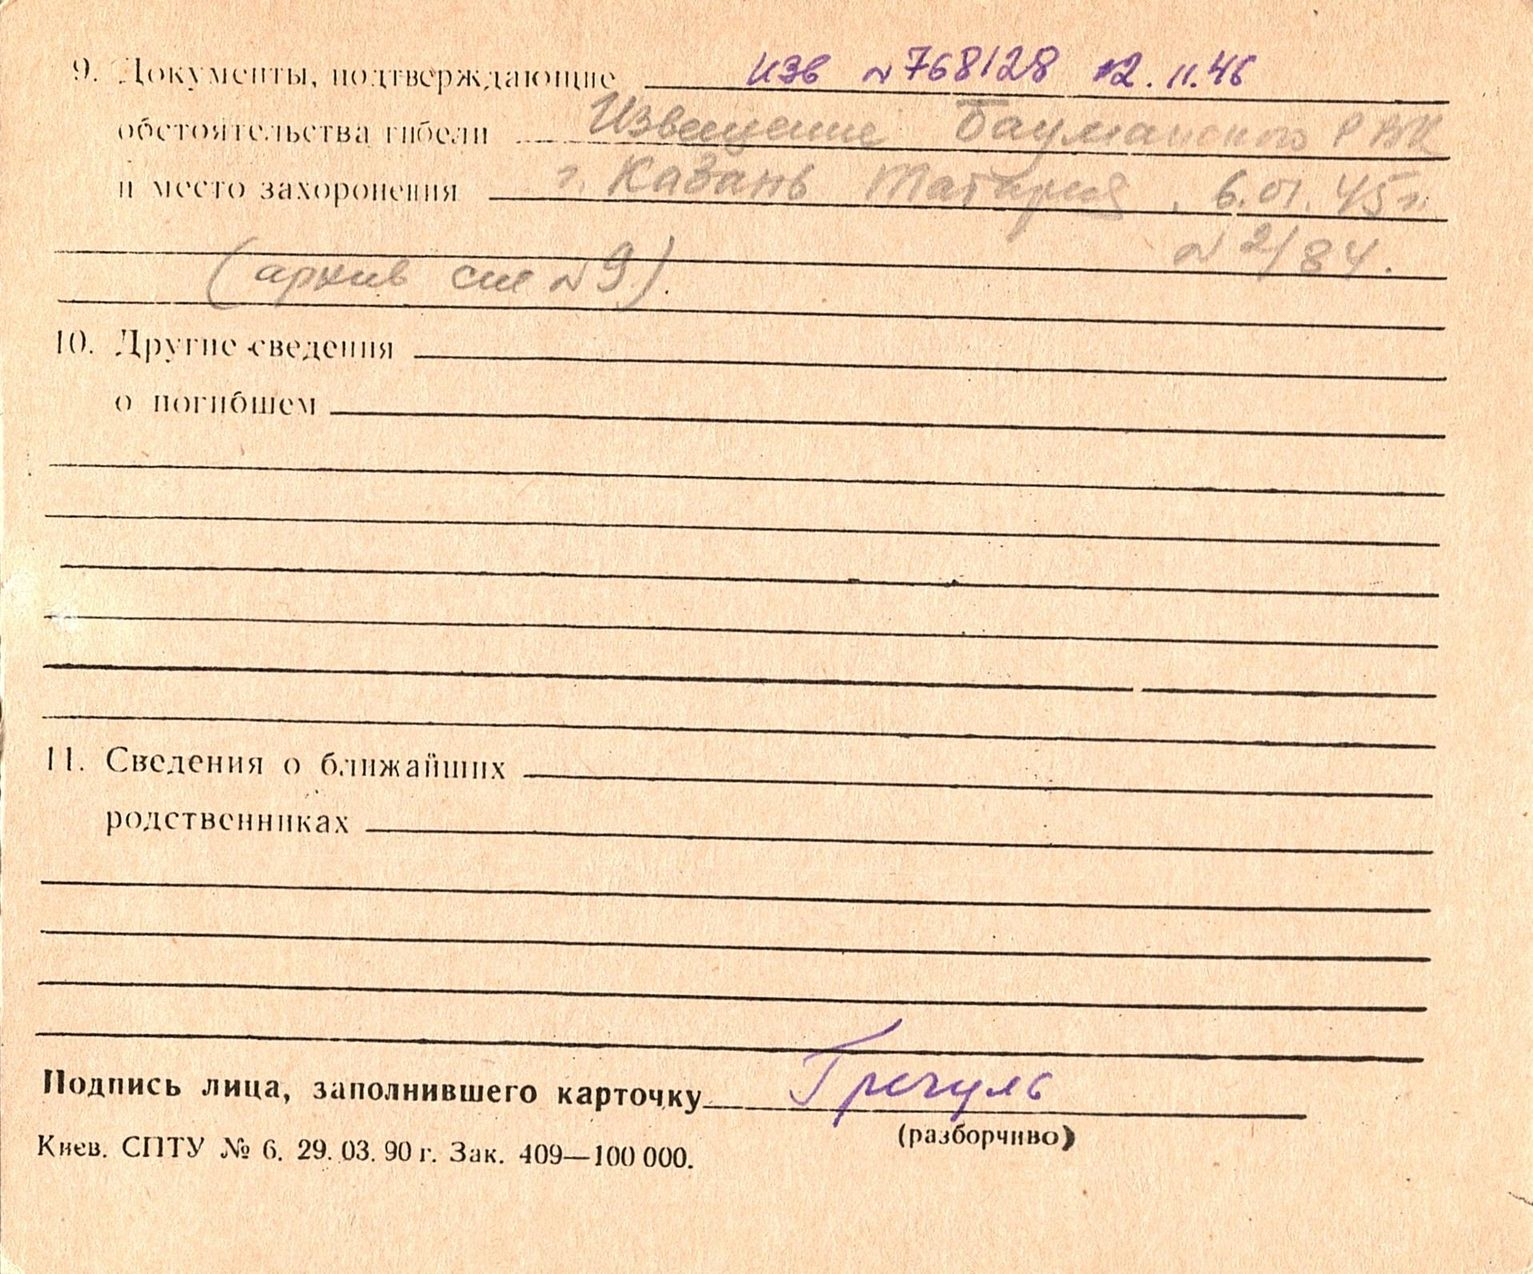 9. Документы, подтверждающие изв №768128 12.11.46
обстоятельства гибели Извещение Бауманского РВК
и место захоронения г. Казань Татария, 6.01.45г.
№ 2/84.
(архив см №9).
10. Другие сведения
о погибшем
11. Сведения о ближайших
родственниках
Подпись лица, заполнившего карточку Гречуль
(разборчиво)
Киев. СПТУ № 6. 29.03.90 г. Зак. 409—100 000.